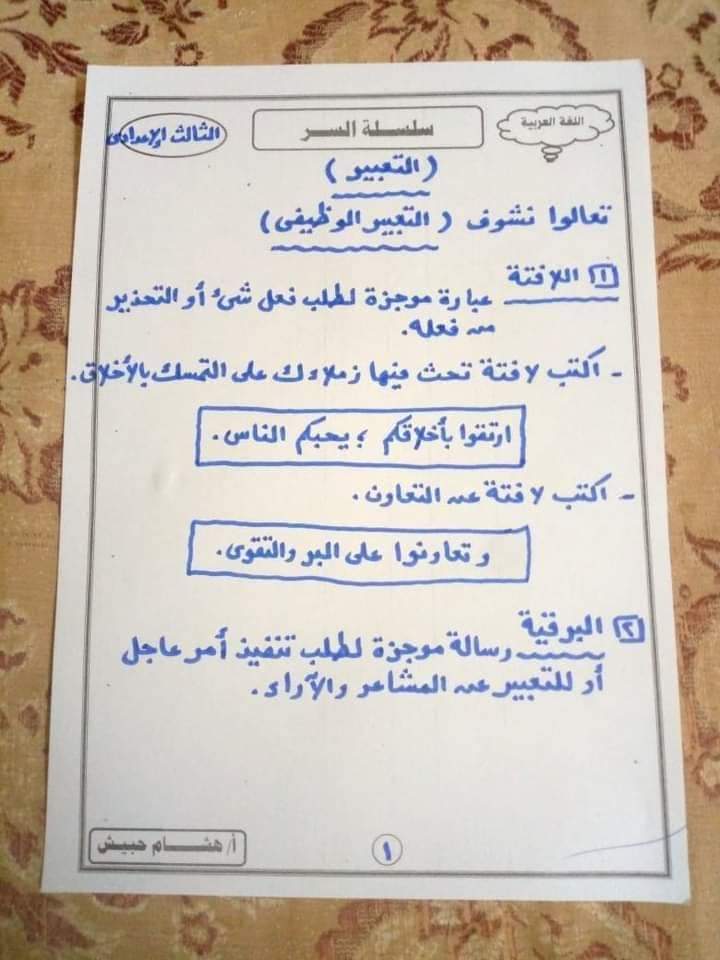 اللغة العربية
سلسلة السر
الثالث الإعدادى
( التعبير )
تعالوا نشوف ( التعبير الوظيفى )
١ اللافتة عبارة موجزة لطلب فعل شئ أو التحذير
من فعله.
- اكتب لافتة تحث فيها زملاءك على التمسك بالأخلاق.
ارتقوا بأخلاقكم ؛ يحبكم الناس.
- اكتب لافتة عن التعاون.
وتعاونوا على البر والتقوى.
٢ البرقية رسالة موجزة لطلب تنفيذ أمر عاجل
أو للتعبير عن المشاعر والآراء.
١
أ/ هشام حبيش